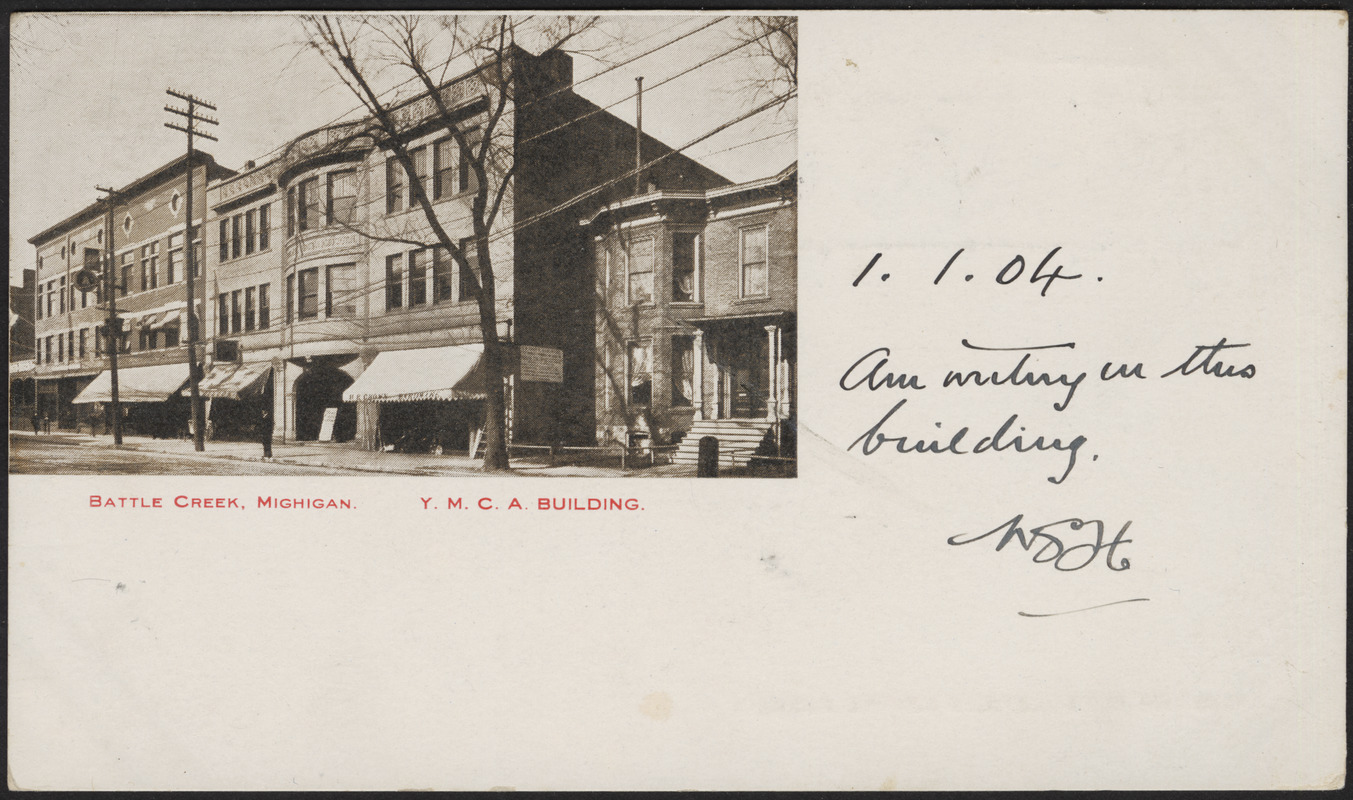 BATTLE CREEK, MIGHIGAN. Y. M. C. A. BUILDING.
1. 1. 04.
Am writing in this
building.
WSH